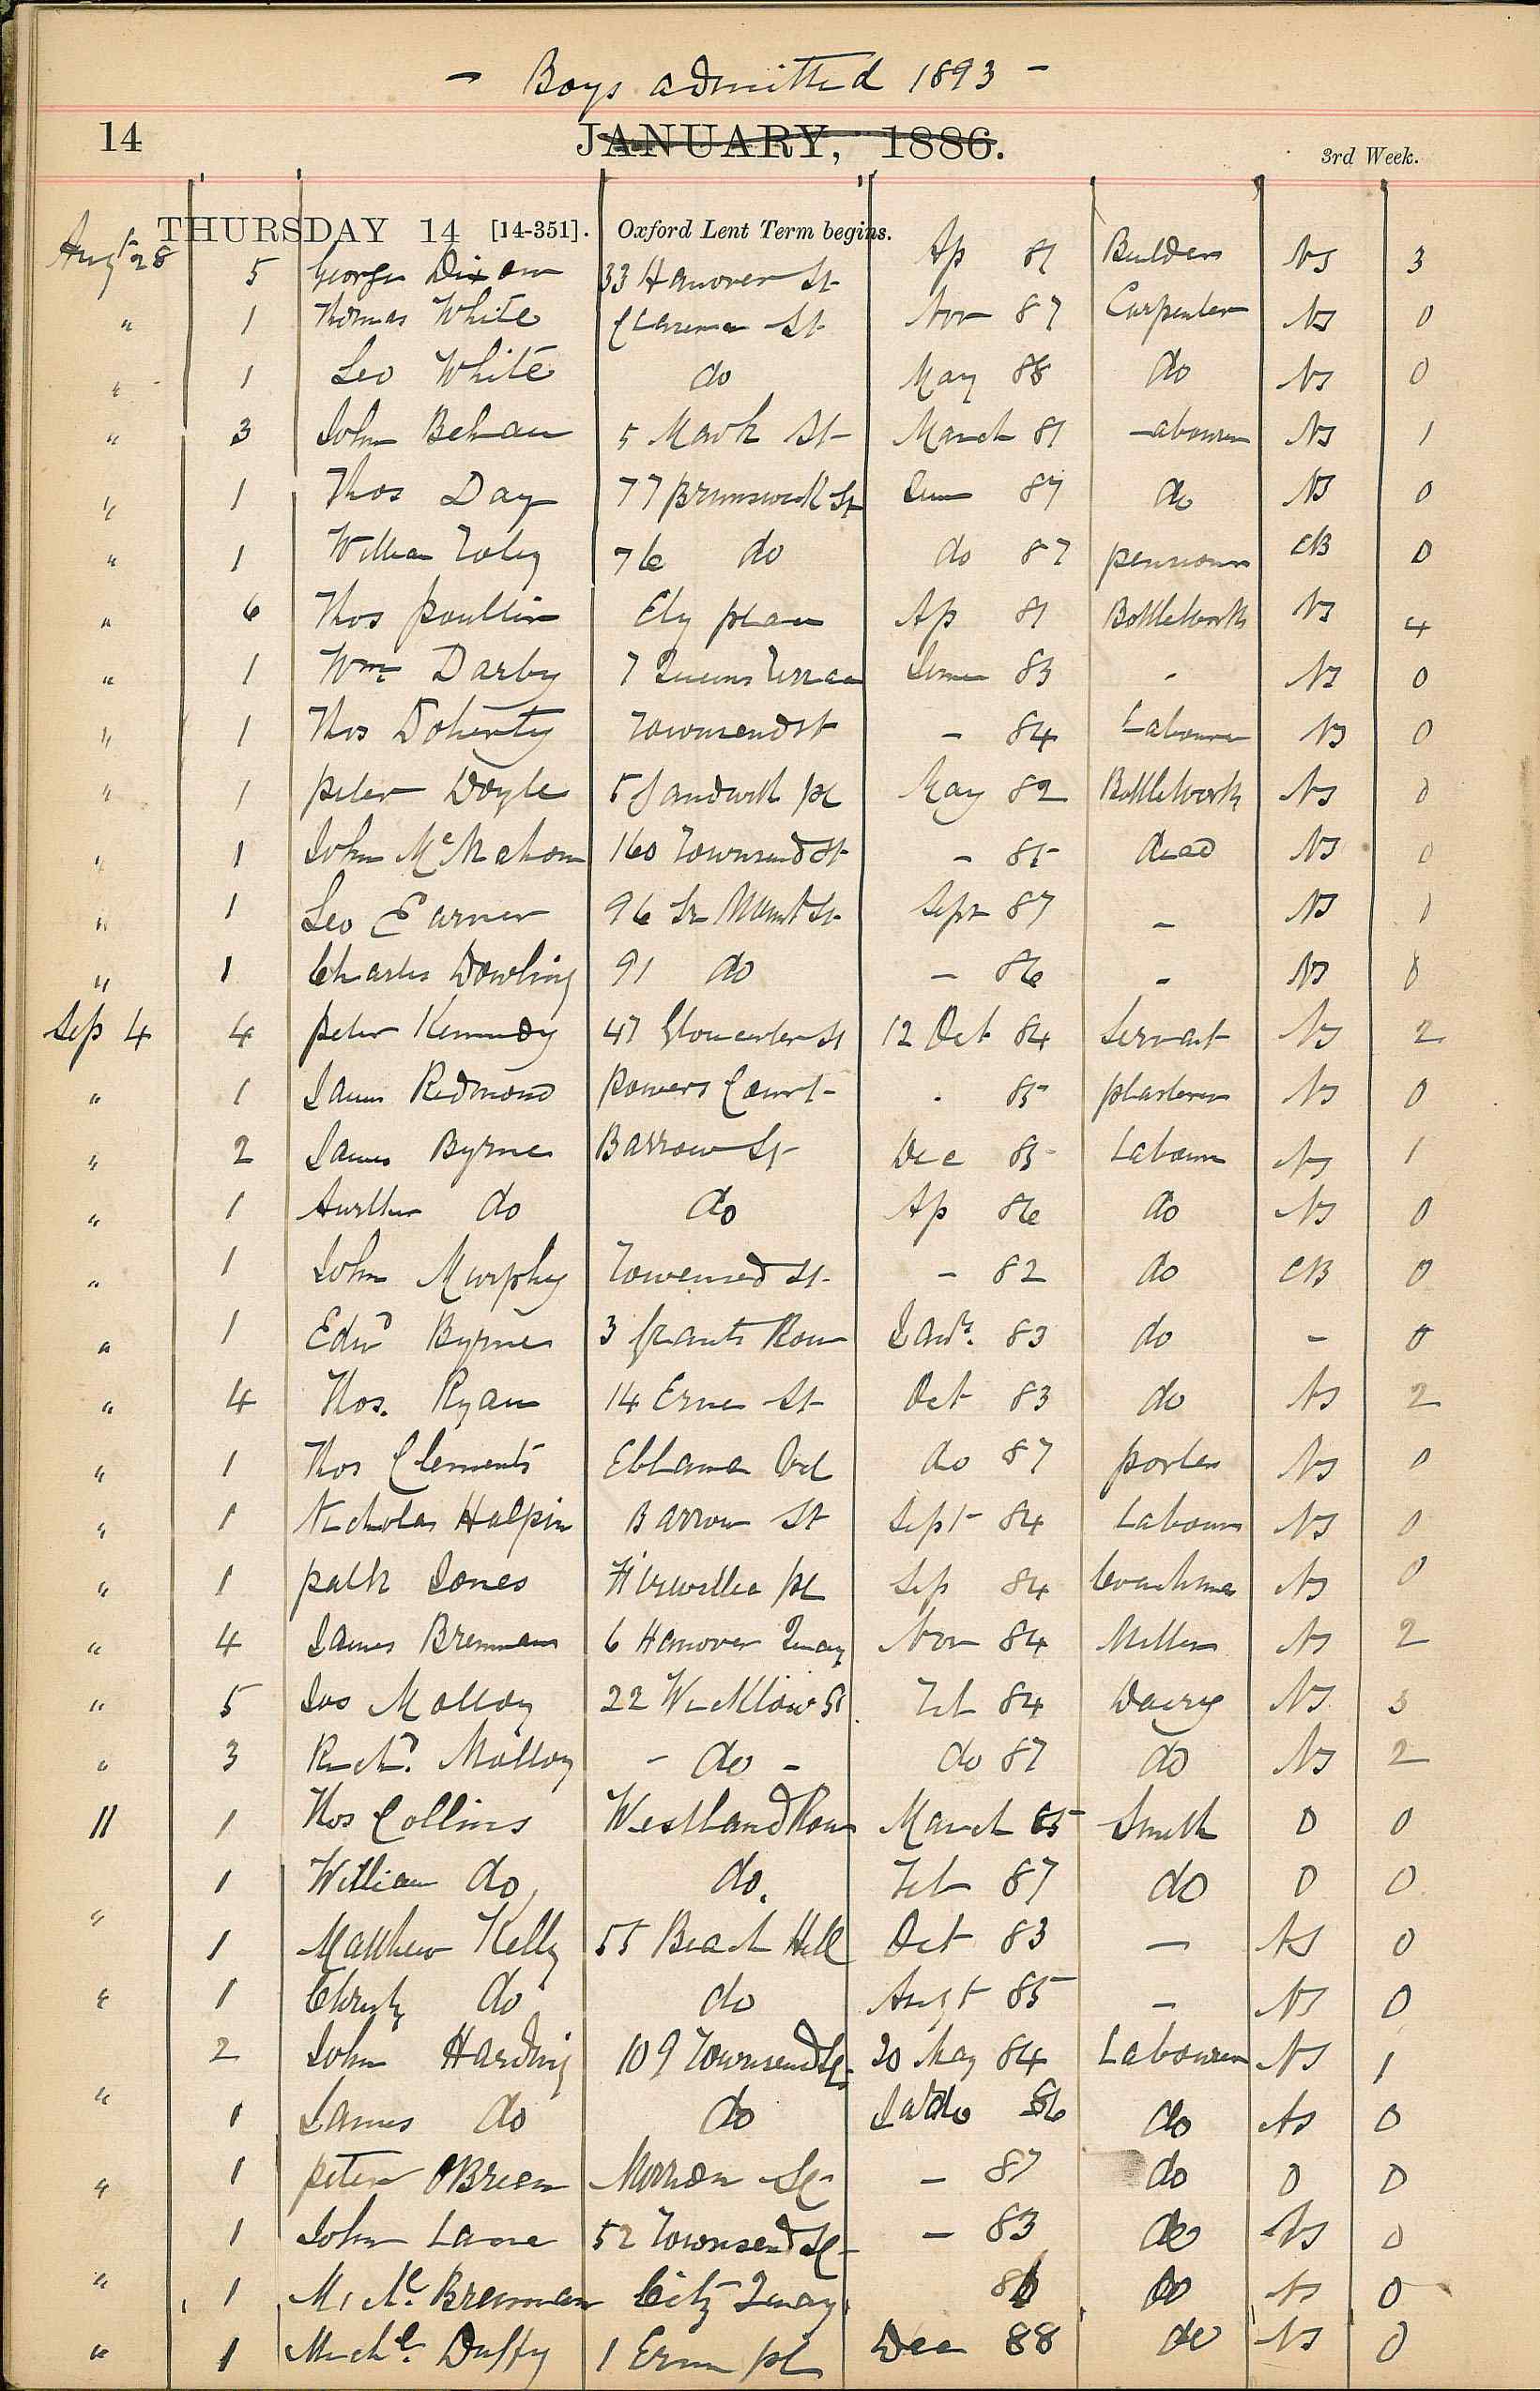 - Boys admitted 1893 -
14 JANUARY, 1886. 3rd Week.
THURSDAY 14 [14-351]. Oxford Lent Term begins.
Augt 28 5 George Dixon 33 Hanover St Ap 81 Builder NS 3
" 1 Thomas White Clarence St Nov 87 Carpenter NS 0
" 1 Leo White do May 88 do NS 0
" 3 John Behan 5 Mark St March 81 Labourer NS 1
" 1 Thos Day 77 Brunswick St June 87 do NS 0
" 1 William Foley 76 do do 87 pensioner CB 0
" 6 Thos poullin Ely place Ap 81 BottleWorks NS 4
" 1 Wm Darby 7 Queens Terrace 83 - NS 0
" 1 Thos Doherty Townsend St - 84 Labourer NS 0
" 1 peter Doyle 5 Sandwith pl May 82 BottleWork NS 0
" 1 John McMahon 160 Townsend St - 85 dead NS 0
" 1 Leo Earner 96 Gr Mount St Sept 87 - NS 0
" 1 Charles Dowling 91 do - 86 - NS 0
Sep 4 4 peter Kennedy 47 Gloucester St 12 Oct 84 Servant NS 2
" 1 James Redmond powers Court - 85 plasterer NS 0
" 2 James Byrne Barrow St Dec 85 Labourer NS 1
" 1 Arthur do do Ap 86 do NS 0
" 1 John Murphy Townsend St - 82 do CB 0
" 1 Edwd Byrne 3 grants Row Jany. 83 do - 0
" 4 Thos. Ryan 14 Erne St Oct 83 do NS 2
" 1 Thos Clements Eblana do 87 porter NS 0
" 1 Nicholas Halpin Barrow St Sept 84 Labourer NS 0
" 1 patk Jones pl Sep 84 Coachman NS 0
" 4 James Brennan 6 Hanover Quay Nov 84 Miller NS 2
" 5 Jos Molloy 22 Wicklow St Feb 84 Dairy NS 3
" 3 Richd. Molloy - do - do 87 do NS 2
11 1 Thos Collins Westland Row March 85 Smith 0 0
1 William do do. Feb 87 do 0 0
" 1 Matthew Kelly 55 Beach Hill Oct 83 - NS 0
" 1 Christy do do Augt 85 - NS 0
2 John Harding 109 Townsend St 20 May 84 Labourer NS 1
" 1 James do do do 86 do NS 0
" 1 peter OBrien Merrion Sq - 87 do 0 0
1 John Lane 52 Townsend St - 83 do NS 0
" 1 Michl. Brennan City Quay 86 do NS 0
" 1 Michl. Duffy 1 Erne pl Dec 88 do NS 0